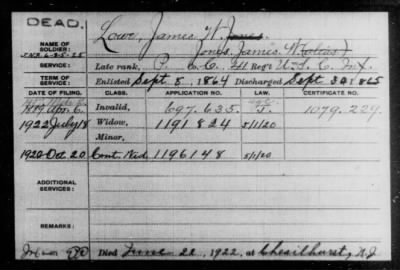 DEAD.
NAME OF SOLDIER: Lowe, James W. Jones
S.N.A 6-25-25 Jones, James W (alias)
SERVICE: Late rank, P. Co. Regt U.S.C. Inf.
TERM OF SERVICE: Enlisted Sept 8, 1864 Discharged Sept 30 1865
DATE OF FILING. CLASS. APPLICATION NO. LAW. CERTIFICATE NO.
1889 Apr. Invalid, 697.635 1079.229
1922 July 18 Widow, 1191824 5/1/20
Minor,
1926 Oct 20 Cont. Wid. 1196148 5/1/20
ADDITIONAL SERVICES:
REMARKS:
Died June 22, 1922, at Chesilhurst, N.J.